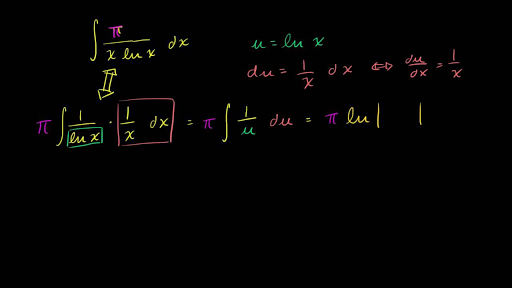 ∫ π / (x ln x) dx
u = ln x
du = 1/x dx ⟺ du/dx = 1/x
π ∫ 1/(ln x) · 1/x dx = π ∫ 1/u du = π ln | |